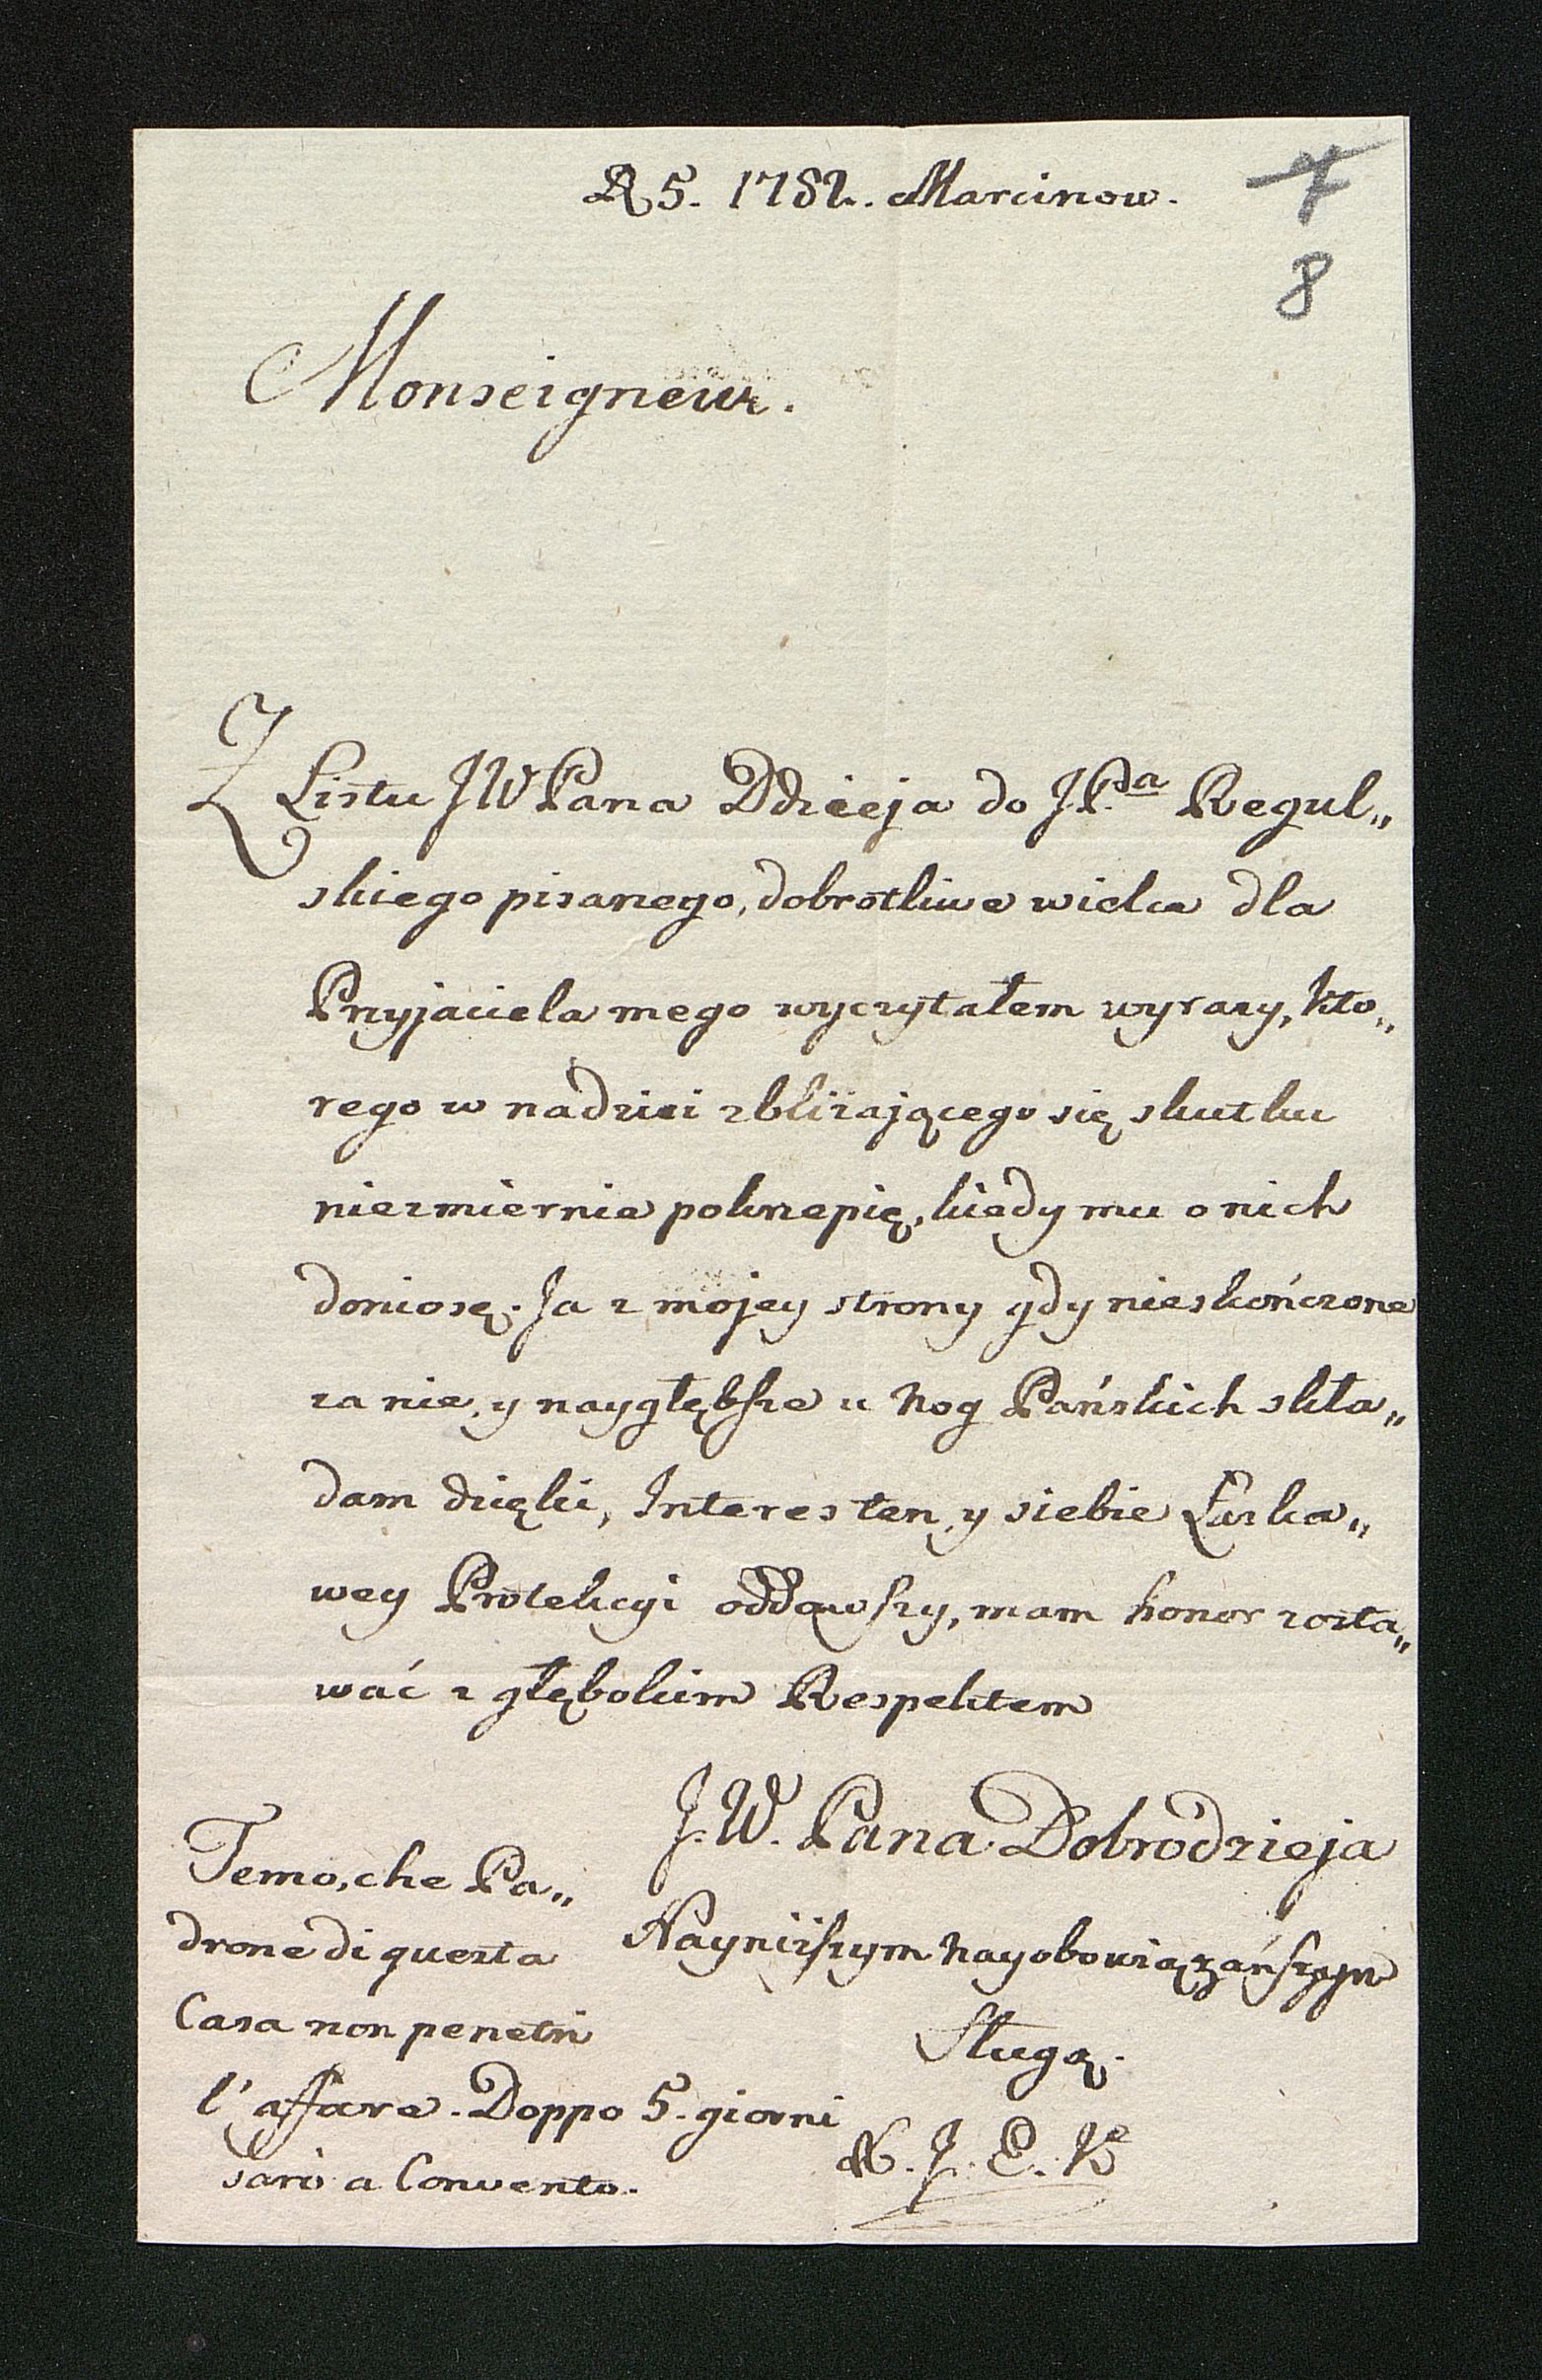 5. 1782. Marcinow.
7
8
Monseigneur.
Z Listu JWPana Ddzieja do JPda Regul„
skiego pisanego, dobrotliwe wielce dla
Przyjaciela mego wyczytałem wyrazy, kto„
rego w nadziei zbliżającego się skutku
niezmiernie pokrzepię, kiedy mu o nich
doniosę. Ja z mojey strony gdy nieskończone
za nie, y naygłębsze u nog Pańskich skła„
dam dzięki, Interes ten, y siebie Łaska„
wey Protekcyi oddawszy, mam honor zosta„
wać z głębokim Respektem
J.W. Pana Dobrodzieja
Nayniższym nayobowiązańszym
Sługą.
X. J. E. K
Temo, che Pa„
drone di questa
Casa non penetri
l'affare. Doppo 5. giorni
sarò a Convento.